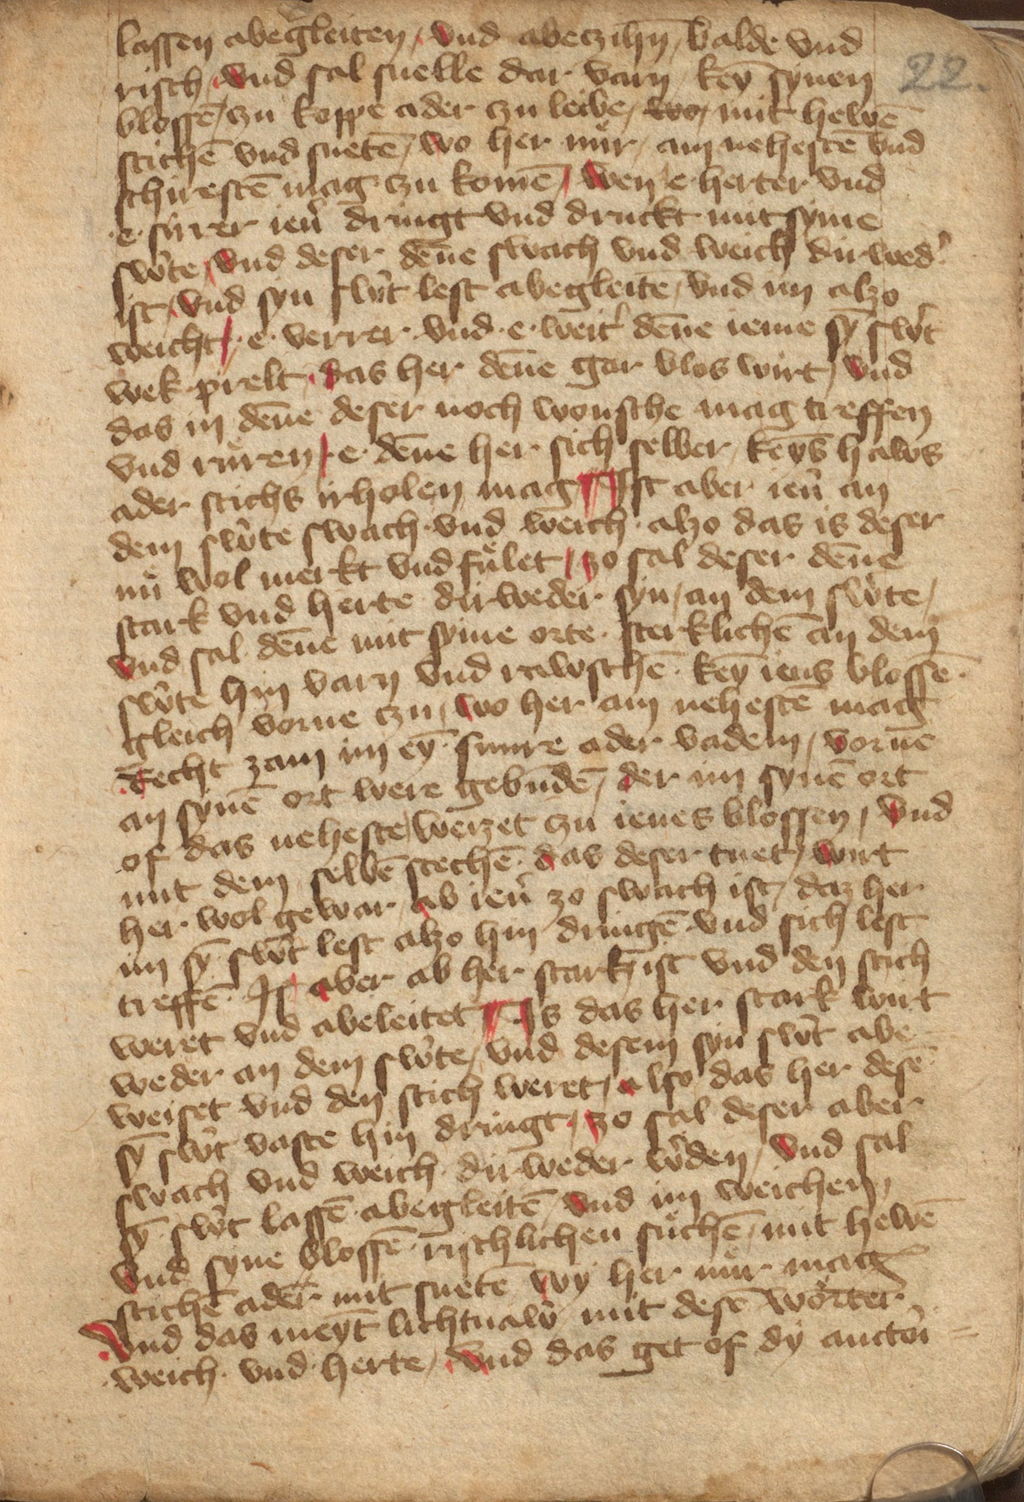 lassen abegleiten / vnd abeczihn / balde vnd
risch / vnd sal snelle dar varn / key̅ synen
blosse̅ / zu koppe ader zu leibe / mit hewe̅
stiche̅ vnd snete̅ / wo her nür / am neheste̅ vnd
schireste̅ mag zu kome̅ / wen e herter vnd
e sürer ien̉ dringt vnd druckt mit syme
sw̉te / vnd deser den̅e swach vnd weich dir wed̉
ist / vnd syn sw̉t lest abegleite̅ / vnd im alzo
weicht / e verrer vnd e weit̉ den̅e ieme sy̅ sw̉t
wek prelt / das her den̅e gar blos wirt / vnd
das in den̅e deser noch wonsche mag treffen
vnd rüren / e den̅e her sich selber / keyn̅s haws
ader stichs irholen mag ¶ Ist aber ien̉ an
dem sw̉te swach vnd weich alzo das is deser
nü wol merkt vnd fület / zo sal deser den̅e
stark vnd herte dirweder syn / an dem sw̉te /
vnd sal den̅e mit syme orte sterkliche̅ an dem
sw̉te hin varn vnd rawsche̅ key̅ iens blosse̅
gleich vorne zu / wo her am neheste̅ mag
recht zam im ey̅ snure ader vadem / vorne
an syne̅ ort were gebunde̅ / der im syne̅ ort
of das neheste weizet zu ienes blossen / vnd
mit dem selbe̅ steche̅ das deser tuet / wirt
her wol gewar / ab ien̉ zo swach ist / daz her
im sy̅ sw̉t lest alzo hin dringe̅ vnd sich lest
treffe̅ Is aber ab her stark ist vnd den stich
weret vnd abeleitet ¶ Is das her stark wirt
weder an dem sw̉te / vnd desem syn sw̉t abe
weiset vnd den stich weret / also das her dese̅
sy̅ sw̉t vaste hin dringt / zo sal deser aber
swach vnd weich dirweder w̉den / vnd sal
sy̅ sw̉t lasse̅ abegleite̅ / vnd im weichen /
vnd syne blosse̅ rischlichen süche̅ / mit hewe̅
stiche̅ ader mit snete̅ wy her nür mag
Vnd das meynt lichtnaw̉ mit dese̅ wörter
weich vnd herte / vnd das get of dy auctori=